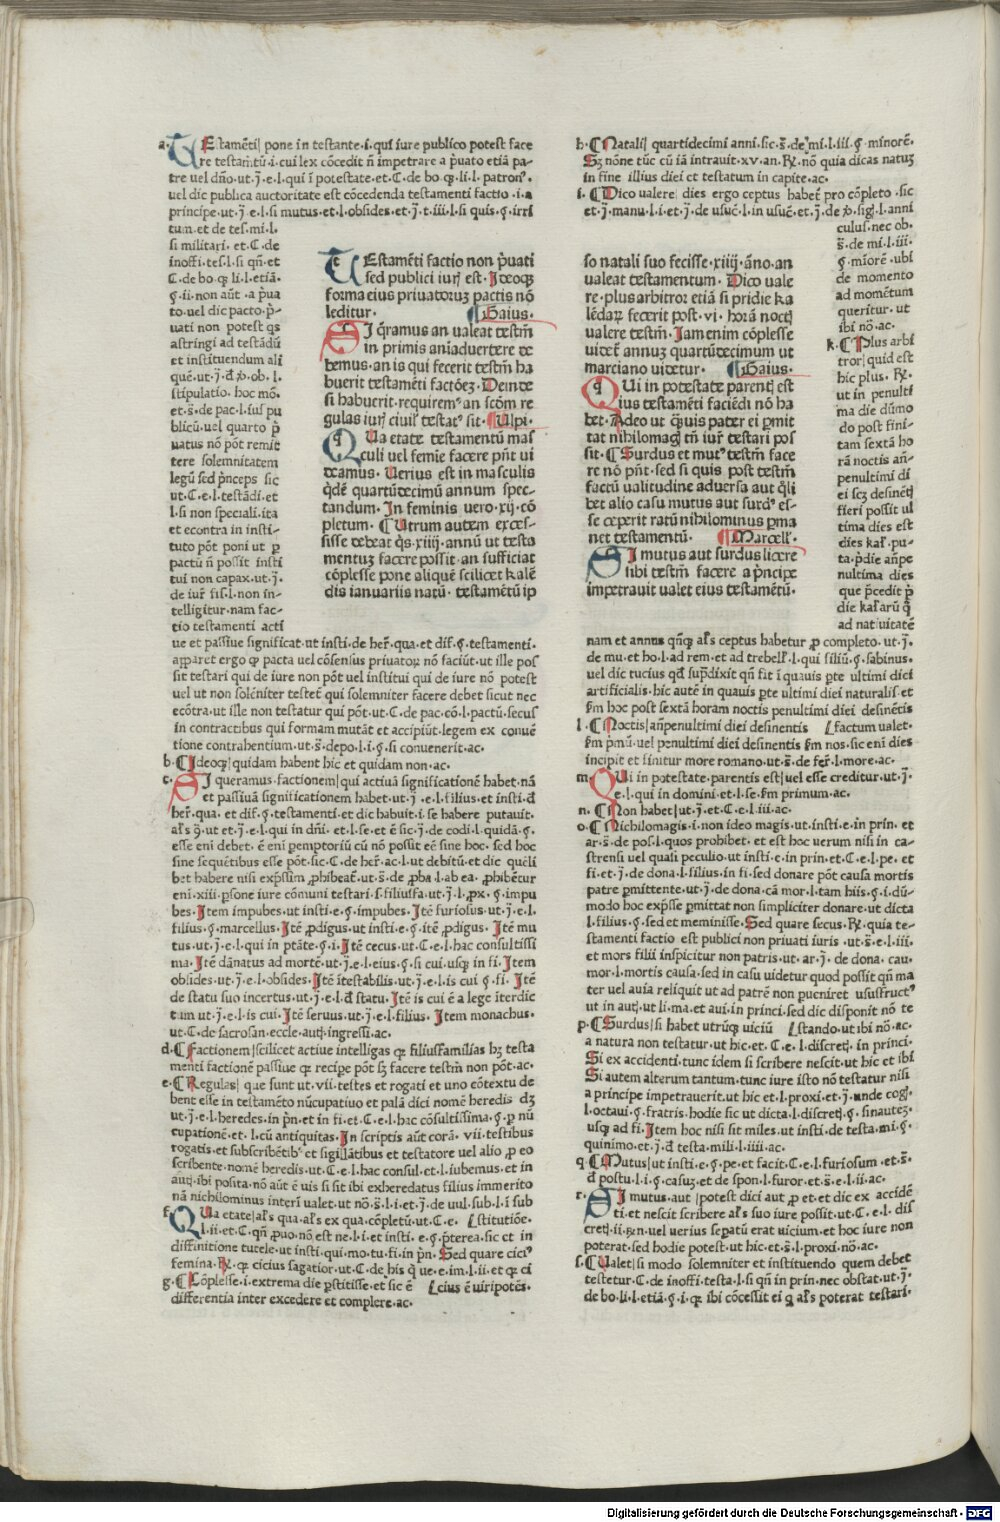 a. TEstamēti| pone in testante.i. qui iure publico potest face
re testam̄.tū.i cui lex cōcedit n̄ impetrare a p̄uato etiā pa-
tre uel dn̄o.ut.j̄.e.l.qui ī potestate.et.C.de bo.q̄.li.l.patronꝰ.
uel dic publica auctoritate est cōcedenda testamenti factio.i.a
principe.ut.j̄.e.l.si mutus.et.l.obsides.et.j̄.t.iii.l.si quis.§.irri
tum.et de tes.mi.l.
si militari. et.C.de
inoffi.tes.l.si qn̄.et
C.de bo.q̄ li.l.etiā.
§.ii.non aūt.a p̄ua
to.uel dic pacto.p̄-
uati non potest qs
astringi ad testādū
et instituendum ali
quē.ut.j̄.đ ꝟ.ob.l.
stipulatio. hoc mō.
et.s̄.de pac.l.ius pu
blicū.uel quarto p̄
uatus nō pōt remit
tere solemnitatem
legū sed p̄nceps sic
ut.C.e.l.testādi.et
l.si non speciali.ita
et econtra in insti-
tuto pōt poni ut p
pactū n̄ possit insti
tui non capax.ut.j̄.
de iur̄ fis.l.non in-
telligitur.nam fac-
tio testamenti acti
ue et passiue significat.ut insti.de her̄.qua.et dif.§.testamenti.
apparet ergo qꝫ pacta uel cōsensus priuatorꝫ nō faciūt.ut ille pos
sit testari qui de iure non pōt uel institui qui de iure nō potest
uel ut non solēniter testet̄ qui solemniter facere debet sicut nec
ecōtra.ut ille non testatur qui pōt.ut.C.de pac.cō.l.pactū.secus
in contractibus qui formam mutāt et accipiūt.legem ex conuē
tione contrahentium.ut.s̄.depo.l.i.§.si conuenerit.ac.
b. ¶Ideoqꝫ| quidam habent hic et quidam non.ac.
c. SI queramus.factionem| qui actiuā significationē habet.nā
et passiuā significationem habet.ut.j̄.e.l.filius.et insti.đ
her̄.qua.et dif.§.testamenti.et dic habuit.i.se habere putauit.
al̄s q̄.ut et.j̄.e.l.qui in dn̄i.et.l.se.et ē sic.j̄.de codi.l.quidā.§.
esse eni debet.ē eni p̄emptoriū cū nō possit eē sine hoc.sed hoc
sine sequētibus esse pōt.sic.C.de her̄.ac.l.ut debitū.et dic quēli
bet habere nisi exp̄ssim ꝓhibeat̄.ut.s̄.de ꝓba.l.ab ea.ꝓhibētur
eni.xiii.ꝑsone iure cōmuni testari.s.filiusfa.ut.j̄.l.ꝓx.§.impu
bes.Item impubes.ut insti.e.§.impubes.Itē furiosus.ut.j̄.e.l.
filius.§.marcellus.Itē ꝓdigus.ut insti.e.§.itē ꝓdigus.Itē mu
tus.ut.j̄.e.l.qui in ptāte.§.i.Itē cecus.ut.C.e.l.hac consultissi
ma.Itē dānatus ad mortē.ut.j̄.e.l.eius.§.si cui.usqꝫ in fi.Item
obsides.ut.j̄.e.l.obsides.Itē ītestabilis.ut.j̄.e.l.is cui §.fi. Itē
de statu suo incertus.ut.j̄.e.l.đ statu.Itē is cui ē a lege īterdic
tum.ut.j̄.e.l.is cui.Itē seruus.ut.j̄.e.l.filius.Item monachus.
ut.C.de sacrosan.eccle.autꝫ.ingressi.ac.
d. ¶Factionem| scilicet actiue intelligas qꝫ filiusfamilias hꝫ testa
menti factionē passiue qꝫ recipe pōt sꝫ facere testm̄ non pōt.ac.
e. ¶Regulas| que sunt ut.vii.testes et rogati et uno cōtextu de
bent esse in testamēto nūcupatiuo et palā dici nomē heredis dꝫ
ut.j̄.e.l.heredes.in p̄n.et in fi.et.C.e.l.hac cōsultissima.§.ꝑ nū
cupationē.et.l.cū antiquitas.In scriptis aūt corā.vii.testibus
rogatis.et subscribētibꝰ et sigillātibus et testatore uel alio ꝓ eo
scribente nomē heredis.ut.C.e.l.hac consul.et.l.iubemus.et in
autꝫ.ibi posita.nō aūt ē uis si sit ibi exheredatus filius immerito
nā nichilominus interī ualet.ut nō.s̄.l.i.et.j̄.de uul.sub.l.ī sub
f. QUa etate| al̄s qua.al̄s ex qua.cōpletū.ut.C.e. [stitutiōe.
l.ii.et.C.qn̄ ꝓuo.nō est ne.l.i.et insti.e.§.p̄terea.sic et in
diffinitione tutele.ut insti.qui.mo.tu.fi.in p̄n.Sed quare ciciꝰ
femina.℞.qꝫ cicius sagatior.ut.C.de his q̄ ue.e.im.l.ii.et qꝫ ci
g. ¶Cōplesse.i.extrema die ꝑstitisse.et sic ē [cius ē uiripotēs.
differentia inter excedere et complere.ac.
TEstamēti factio non p̄uati
sed publici iurꝫ est.Ideoqꝫ
forma eius priuatoruꝫ pactis nō
leditur. ¶Gaius.
SI q̄ramus an ualeat testm̄
in primis aniaduertere de
bemus.an is qui fecerit testm̄ ha
buerit testamēti factōeꝫ.Deinde
si habuerit.requiremꝰ an scōm re
gulas iurꝫ ciuilꝫ testatꝰ sit. ¶Ulpi.
QUa etate testamentū mas
culi uel femie facere pn̄t ui
deamus. Uerius est in masculis
q̄dē quartūdecimū annum spec-
tandum. In feminis uero.xij.cō
pletum. ¶Utrum autem exces-
sisse debeat q̄s.xiiij.annū ut testa
mentuꝫ facere possit.an sufficiat
cōplesse pone aliquē scilicet kalē
dis ianuariis natū. testamētū ip
so natali suo fecisse.xiiij.āno.an
ualeat testamentum. Dico uale
re.plus arbitror etiā si pridie ka
lēdaꝝ fecerit post.vi.horā noctꝫ
ualere testm̄. Iam enim cōplesse
uidet̄ annuꝫ quartūdecimum ut
marciano uidetur. ¶Gaius.
QUi in potestate parentꝫ est
ius testamēti faciēdi nō ha
bet.Adeo ut q̄uis pater ei ꝑmit
tat nihilomagꝫ tn̄ iur̄ testari pos
sit. ¶Surdus et mutꝰ testm̄ face
re nō pn̄t.sed si quis post testm̄
factū ualitudine aduersa aut q̄li
bet alio casu mutus aut surdꝰ es-
se ceperit ratū nihilominus ꝑma
net testamentū. ¶Marcellꝰ.
SI mutus aut surdus licere
sibi testm̄ facere a p̄ncipe
impetrauit ualet eius testamētū.
h. ¶Natali| quartidecimi anni.sic.s̄.de mi.l.iii.§.minorē.
Sꝫ nōne tūc cū iā intrauit.xv.an.℞.nō quia dicas natuꝫ
in fine illius diei et testatum in capite.ac.
i. ¶Dico ualere| dies ergo ceptus habet̄ pro cōpleto.sic
et.j̄.manu.l.i.et.j̄.de usuc̄.l.in usuc̄.et.j̄.de ꝟ.sig.l.anni
culus.nec ob.
s̄.de mi.l.iii.
§.miorē.ubi
de momento
ad momētum
queritur.ut
ibi nō.ac.
k. ¶Plus arbi
tror| quid est
hic plus. ℞.
ut in penulti
ma die dūmo
do post fini-
tam sextā ho
rā noctis an̄-
penultimi di
ei scꝫ desinetꝫ
fieri possit ul
tima dies est
dies kal̄.pu-
ta.p̄die an̄pe
nultima dies
que p̄cedit p̄
die kal̄arū q̄
ad natiuitatē
nam et annus qn̄qꝫ al̄s ceptus habetur ꝓ completo.ut.j̄.
de mu.et ho.l.ad rem.et ad trebell̄.l.qui siliū.§.sabinus.
uel dic tucius qđ sup̄dixit qn̄ fit ī quauis ꝑte ultimi dici
artificialis.hic autē in quauis ꝑte ultimi diei naturalis et
fm̄ hoc post sextā horam noctis penultimi diei desinētis
l. ¶Noctis| an̄penultimi diei desinentis [factum ualet.
fm̄ pmū.uel penultimi diei desinentis fm̄ nos.sic eni dies
incipit et finitur more romano.ut.s̄.de fer̄.l.more.ac.
m. QUi in potestate parentis est| uel esse creditur.ut.j̄.
e.l.qui in domini.et.l.se.fm̄ primum.ac.
n. ¶Non habet| ut.j̄.et.C.e.l.iii.ac.
o. ¶Nichilomagis.i.non ideo magis.ut.insti.e.in prin. et
ar.s̄.de pos.l.quos prohibet. et est hoc uerum nisi in ca-
strensi uel quasi peculio.ut insti.e.in prin.et.C.e.l.pe. et
fi.et.j̄.de dona.l.filius.in fi.sed donare pōt causa mortis
patre ꝑmittente.ut.j̄.de dona.cā mor.l.tam hiis.§.i.dū-
modo hoc exp̄sse ꝑmittat non simpliciter donare.ut dicta
l.filius.§.sed et meminisse.Sed quare secus.℞.quia te-
stamenti factio est publici non priuati iuris .ut.s̄.e.l.iii.
et mors filii inspicitur non patris.ut ar.j̄. de dona. cau.
mor.l.mortis causa.sed in casu uidetur quod possit qn̄ ma
ter uel auia reliquit ut ad patrē non ꝑueniret ususfructꝰ
ut in autꝫ.ut li.ma.et aui.in princi.sed dic disponit nō te
p. ¶Surdus| si habet utrūqꝫ uiciū [stando.ut ibi nō.ac.
a natura non testatur.ut hic et.C.e.l.discretꝫ. in princi.
Si ex accidenti.tunc idem si scribere nescit.ut hic et ibi
Si autem alterum tantum.tunc iure isto nō testatur nisi
a principe impetrauerit.ut hic et.l.proxi.et.j̄.unde cogꝫ.
l.octaui.§.fratris.hodie sic ut dicta.l.discretꝫ.§.sinauteꝫ.
usqꝫ ad fi.Item hoc nisi sit miles.ut insti.de testa.mi.§.
quinimo.et.j̄.đ testa.mili.l.iiii.ac.
q. ¶Mutus| ut insti.e.§.pe.et facit.C.e.l.furiosum.et.s̄.
đ postu.l.i.§.casuꝫ.et de spon.l.furor.et.s̄.e.l.ii.ac.
r. SI mutus.aut| potest dici aut ꝓ et.et dic ex accidē
ti.et nescit scribere al̄s suo iure possit.ut.C.e.l.dis
cretꝫ.ii.rn̄.uel uerius sepatū erat uicium.et hoc iure non
poterat.sed hodie potest.ut hic.et.s̄.l.proxi.nō.ac.
s. ¶Ualet| si modo solemniter et instituendo quem debet
testetur.C.de inoffi.testa.l.si qn̄.in prin.nec obstat.ut.j̄.
de bo.li.l.etiā.§.i.qꝫ ibi cōcessit ei q̄ al̄s poterat testari.
Digitalisierung gefördert durch die Deutsche Forschungsgemeinschaft - DFG